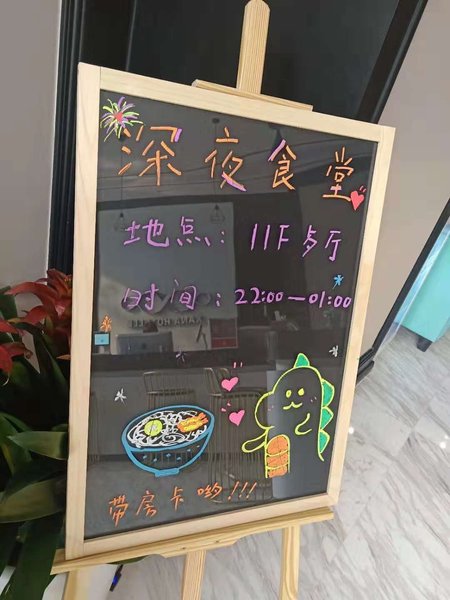 深夜食堂
地点：11F 歺厅
时间：22:00—01:00
带房卡哟!!!